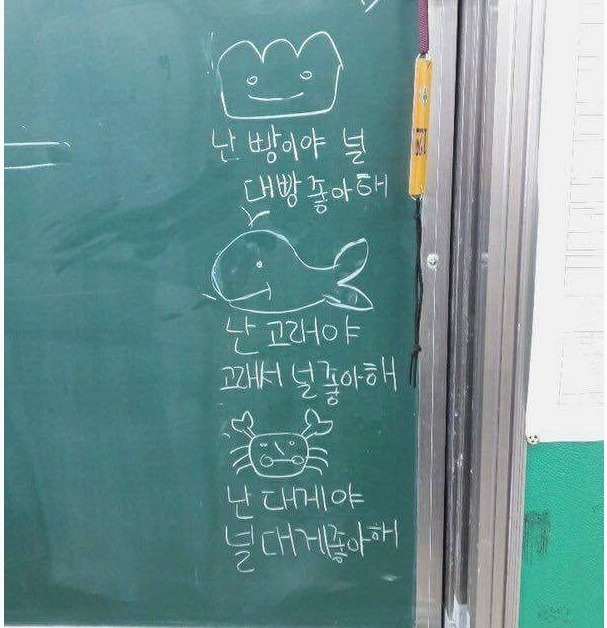 난 빵이야 널
대빵 좋아해
난 고래야
고래서 널 좋아해
난 대게야
널 대게 좋아해